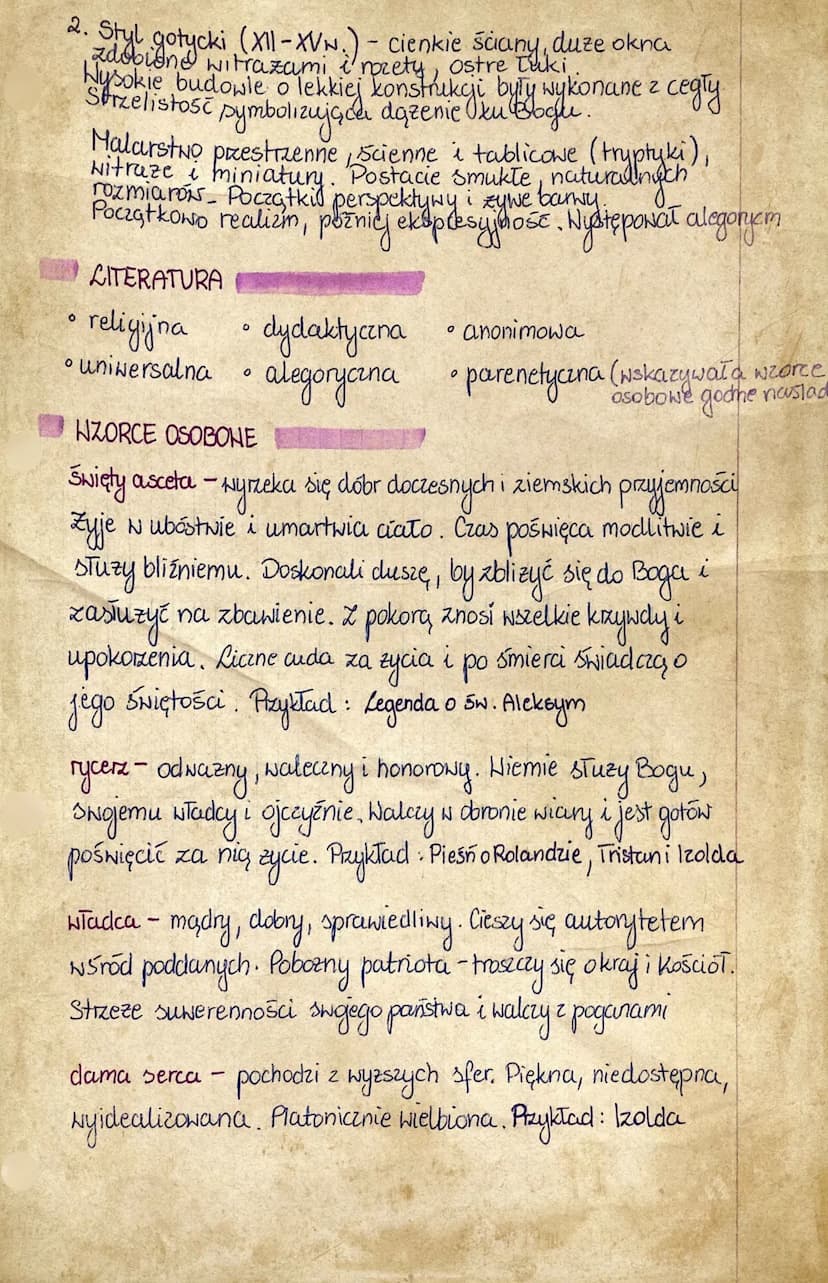 2. Styl gotycki (XII-XVw.) - cienkie ściany, duże okna
zdobione witrażami i rozety, ostre łuki.
Wysokie budowle o lekkiej konstrukcji były wykonane z cegły
Strzelistość symbolizująca dążenie ku Bogu.
Malarstwo przestrzenne, ścienne i tablicowe (tryptyki),
witraże i miniatury. Postacie smukłe, naturalnych
rozmiarów. Początki perspektywy i żywe barwy.
Początkowo realizm, później ekspresyjność. Występował alegoryzm
LITERATURA
• religijna • dydaktyczna • anonimowa
• uniwersalna • alegoryczna • parenetyczna (wskazywała wzorce
osobowe godne naślad
WZORCE OSOBOWE
święty asceta - wyrzeka się dóbr doczesnych i ziemskich przyjemności
Żyje w ubóstwie i umartwia ciało. Czas poświęca modlitwie i
służy bliźniemu. Doskonali duszę, by zbliżyć się do Boga i
zasłużyć na zbawienie. Z pokorą znosi wszelkie krzywdy i
upokorzenia. Liczne cuda za życia i po śmierci świadczą o
jego świętości. Przykład: Legenda o św. Aleksym
rycerz - odważny, waleczny i honorowy. Wiernie służy Bogu,
swojemu władcy i ojczyźnie. Walczy w obronie wiary i jest gotów
poświęcić za nią życie. Przykład: Pieśń o Rolandzie, Tristan i Izolda
władca - mądry, dobry, sprawiedliwy. Cieszy się autorytetem
wśród poddanych. Pobożny patriota - troszczy się o kraj i Kościół.
Strzeże suwerenności swojego państwa i walczy z poganami
dama serca - pochodzi z wyższych sfer. Piękna, niedostępna,
wyidealizowana. Platonicznie wielbiona. Przykład: Izolda